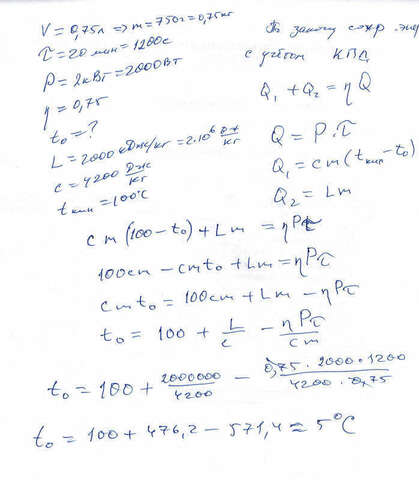 V = 0,75л => m = 750г = 0,75кг
τ = 20 мин = 1200с
P = 2кВт = 2000Вт
η = 0,75
t₀ = ?
L = 2000 кДж/кг = 2·10⁶ Дж/кг
c = 4200 Дж/кг
t кип = 100°C
По закону сохр. энер
с учётом КПД
Q₁ + Q₂ = ηQ
Q = P·τ
Q₁ = cm(tкип - t₀)
Q₂ = Lm
cm(100 - t₀) + Lm = ηPτ
100cm - cmt₀ + Lm = ηPτ
cmt₀ = 100cm + Lm - ηPτ
t₀ = 100 + L/c - ηPτ/cm
t₀ = 100 + 2000000/4200 - 0,75·2000·1200/4200·0,75
t₀ = 100 + 476,2 - 571,4 ≈ 5°C